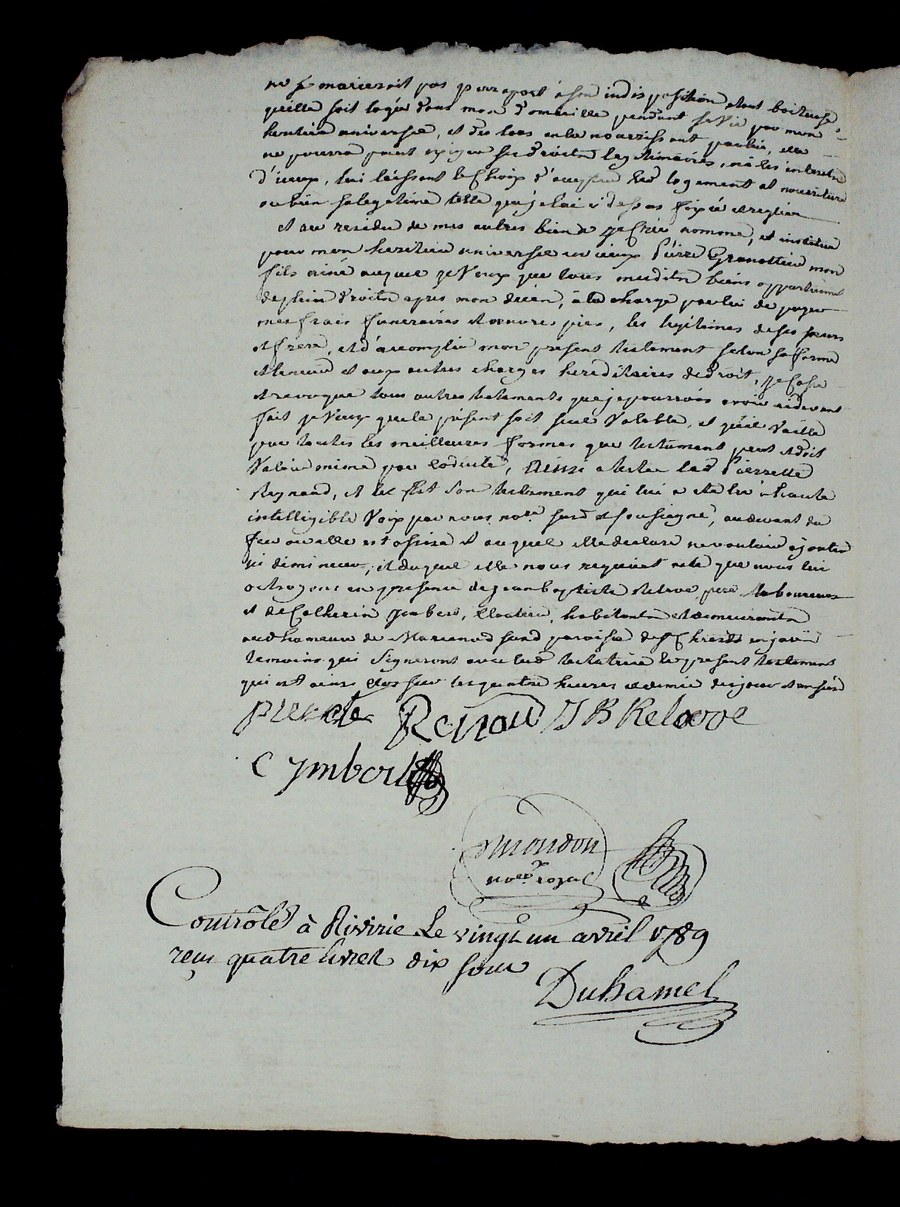 ne se marieroit pas par raport à son indisposition etant boiteuse
quelle soit logée dans mon domicille pendant sa vie par mon
heritier universel, et dès lors en la nourrissant par lui, elle
ne pourra point exiger ses droits legitimaires, ni les interets
d'iceux, lui laissant le choix d'accepter led logement et nourriture
ou bien sa legitime telle que je lai cy dessus fixée et reglée
et au residu de mes autres biens je fais nommé, et institue
pour mon heritier universel en iceux Pierre Granottier mon
fils ainé auquel je veux que tous mesdits biens appartiennent
de plein droits apres mon decès, à la charge par lui de payer
mes frais funeraires et œuvres pies, les legitimes de ses sœurs
et frère, et d'accomplir mon present testament selon sa forme
et teneur et aux autres charges hereditaires de droit, je casse
et revoque tous autres testaments que je pourrois avoir cidevant
fait je veux que le présent soit seul valable, et qu'il vaille
par toutes les meilleures formes que testament peut et doit
valoir même par codicile, Ainsi a testé lad Pierrette
Reynaud, et ce fait son testament qui lui a eté lu à haute
intelligible voix par nous not.re sard et soussigné, audevant du
feu ou elle est assise et auquel elle declare ne vouloir ajouter
ni diminuer, et duquel elle nous requiert acte que nous lui
octroyons en presence de jean baptiste Relave, pere laboureur
et de Catherin ymbert, cloutier, habitants et demeurants
au d hameau de Marcenod susd paroisse de S.t Christo en jarêt
temoins qui signeront avec lad testatrice le present testament
qui est ainsi clos sur les quatre heures et demie des jour et an susd
pierrete Renaud J B Relave
C ymbert
Mondon
no.re royal
Controlé à Riverie Le vingt un avril 1789
reçu quatre livres dix sous
Duhamel